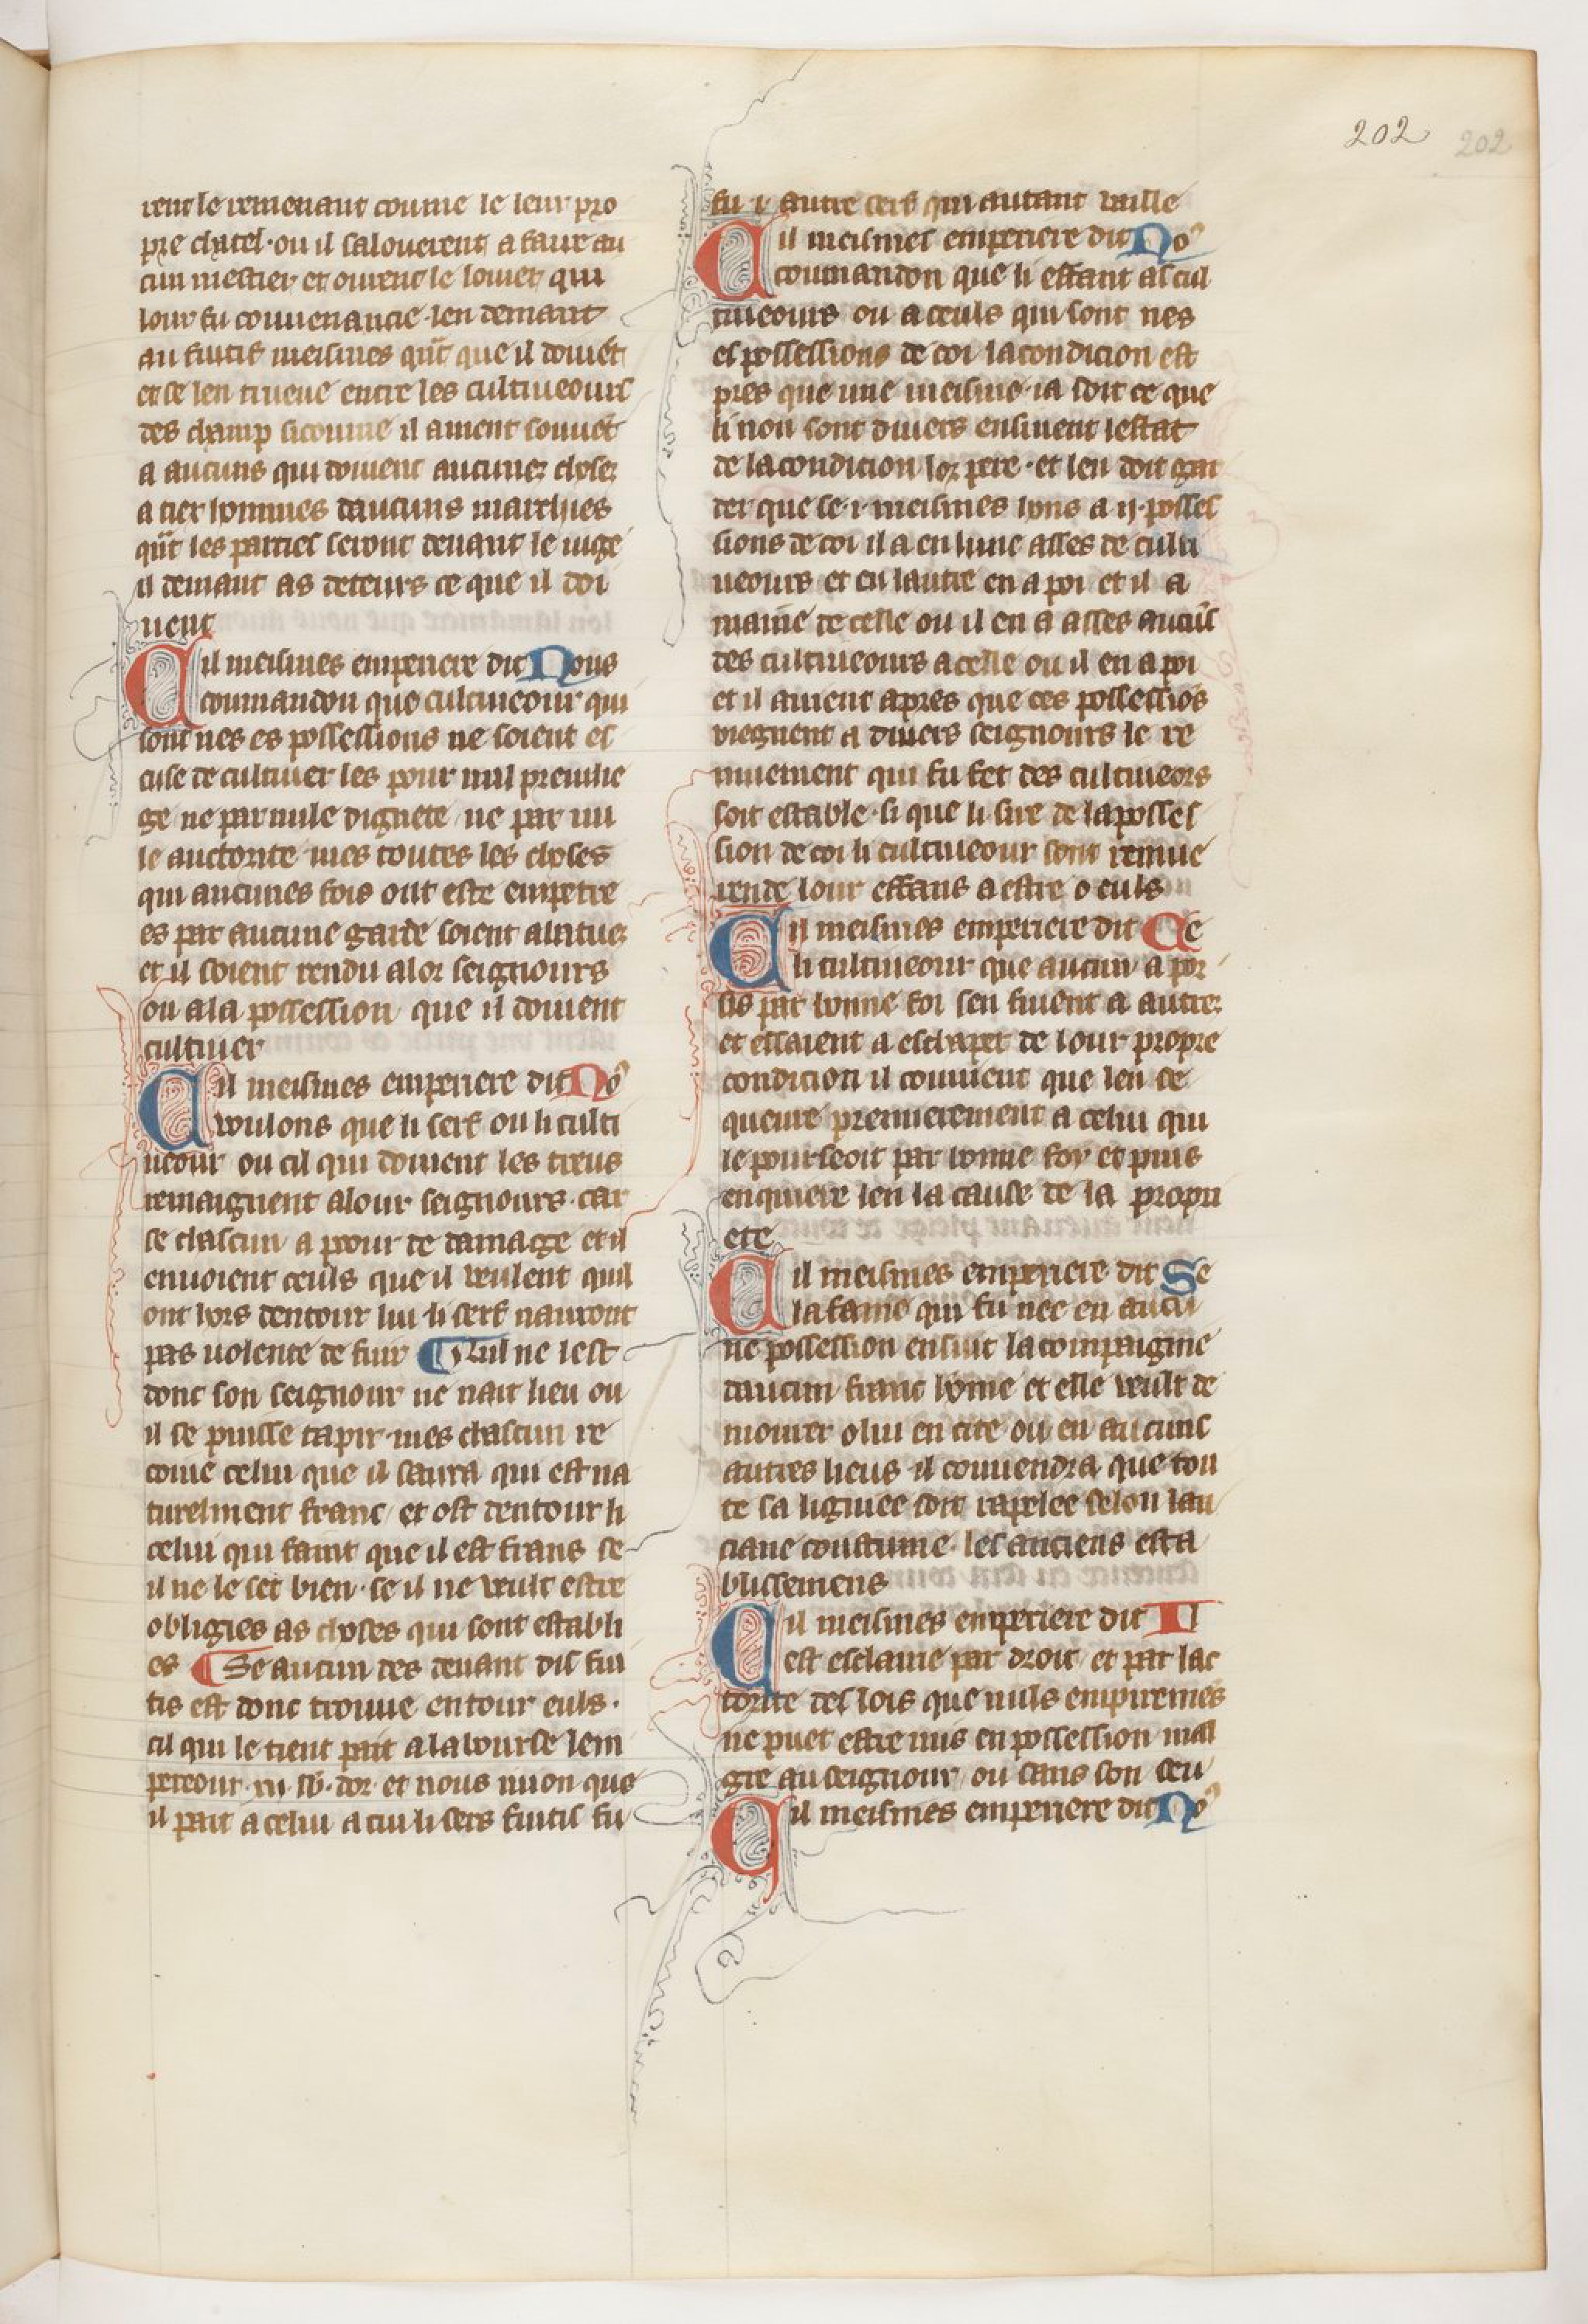 202 202
rent le remenant coume le leur pro
pre chatel · ou il salouerent a faire au
cun mestier et ourent le louier qui
lour fu conuenancie · len demant
au fuitif meismes q̃nt que il doiuẽt
et se len trueue entre les cultiueours
des champ sicoume il auient souuẽt
a aucuns qui doiuent aucunez chosez
a tiex hommes daucuns marchies
q̃nt les parties seront deuant le iuge
il demant as deteurs ce que il doi
uent
Cil meismes emperiere dit Nous
coumandon que cultiueour qui
sont nes es possessions ne soient es
cuse de cultiuer les pour nul preuile
ge ne par nule dignete ne par nu
le auctorite mes toutes les choses
qui aucunes fois ont este empetre
es par aucune garde soient abatues
et il soient rendu a lor seignours
ou a la possession que il doiuent
cultiuer
Cil meismes emperiere dit Noꝰ
voulons que li serf ou li culti
ueour ou cil qui doiuent les treus
remaignent a lour seignours · car
se chascun a poour de damage et il
enuoient ceuls que il veulent quil
ont hors dentour lui · li serf nauront
pas uolente de fuir ¶ Nul ne lest
donc son seignour ne nait lieu ou
il se puisse tapir · mes chascun re
coiue celui que il saura qui est na
turelment franc et ost dentour li
celui qui faint que il est frans se
il ne le set bien · se il ne veult estre
obligies as choses qui sont establi
es ¶ Se aucun des deuant dis fui
tis est donc trouue entour euls ·
cil qui le tient pait a la bourse lem
pereour · xii · lb̃ · dor · et nous uuon que
il pait a celui a cui li sers fuitis fu
fu · i · autre cers qui autant vaille
Cil meismes emperiere dit Noꝰ
coumandon que li effant as cul
tiueours ou a ceuls qui sont nes
es possessions de coi la condicion est
pres que une meisme · ia soit ce que
li non sont diuers ensiuent lestat
de la condicion lor pere · et len doit gar
der que se · i · meismes hons a ij · posses
sions de coi il a en lune asses de culti
ueours et en lautre en a poi et il a
maine de celle ou il en a asses aucũs
des cultiueours a celle ou il en a poi
et il auient apres que ces possessiõs
viegnent a diuers seignours le re
muement qui fu fet des cultiueors
soit estable · si que li sire de la posses
sion de coi li cultiueour sont remue
rende lour effans a estre o euls
Cil meismes emperiere dit Se
li cultiueour que aucun a por
sis par bonne foi sen fuient a autre
et essaient a eschaper de lour propre
condicion il conuient que len se
queure premierement a celui qui
le pourseoit par bonne foy et puis
enquiere len la cause de la propri
ete
Cil meismes emperiere dit Se
la fame qui fu nee en aucu
ne possession ensiuit la compaignie
daucun franc home et elle veult de
mourer o lui en cite ou en aucuns
autres lieus il conuendra que tou
te sa lignee soit rapelee selon lan
ciane coustume · les anciens esta
blissemens
Cil meismes emperiere dit Il
est esclairie par droit et par lac
torite des lois que nuls empiremẽs
ne puet estre mis en possession mal
gre au seignour ou sans son seu
Cil meismes emperiere dit Noꝰ